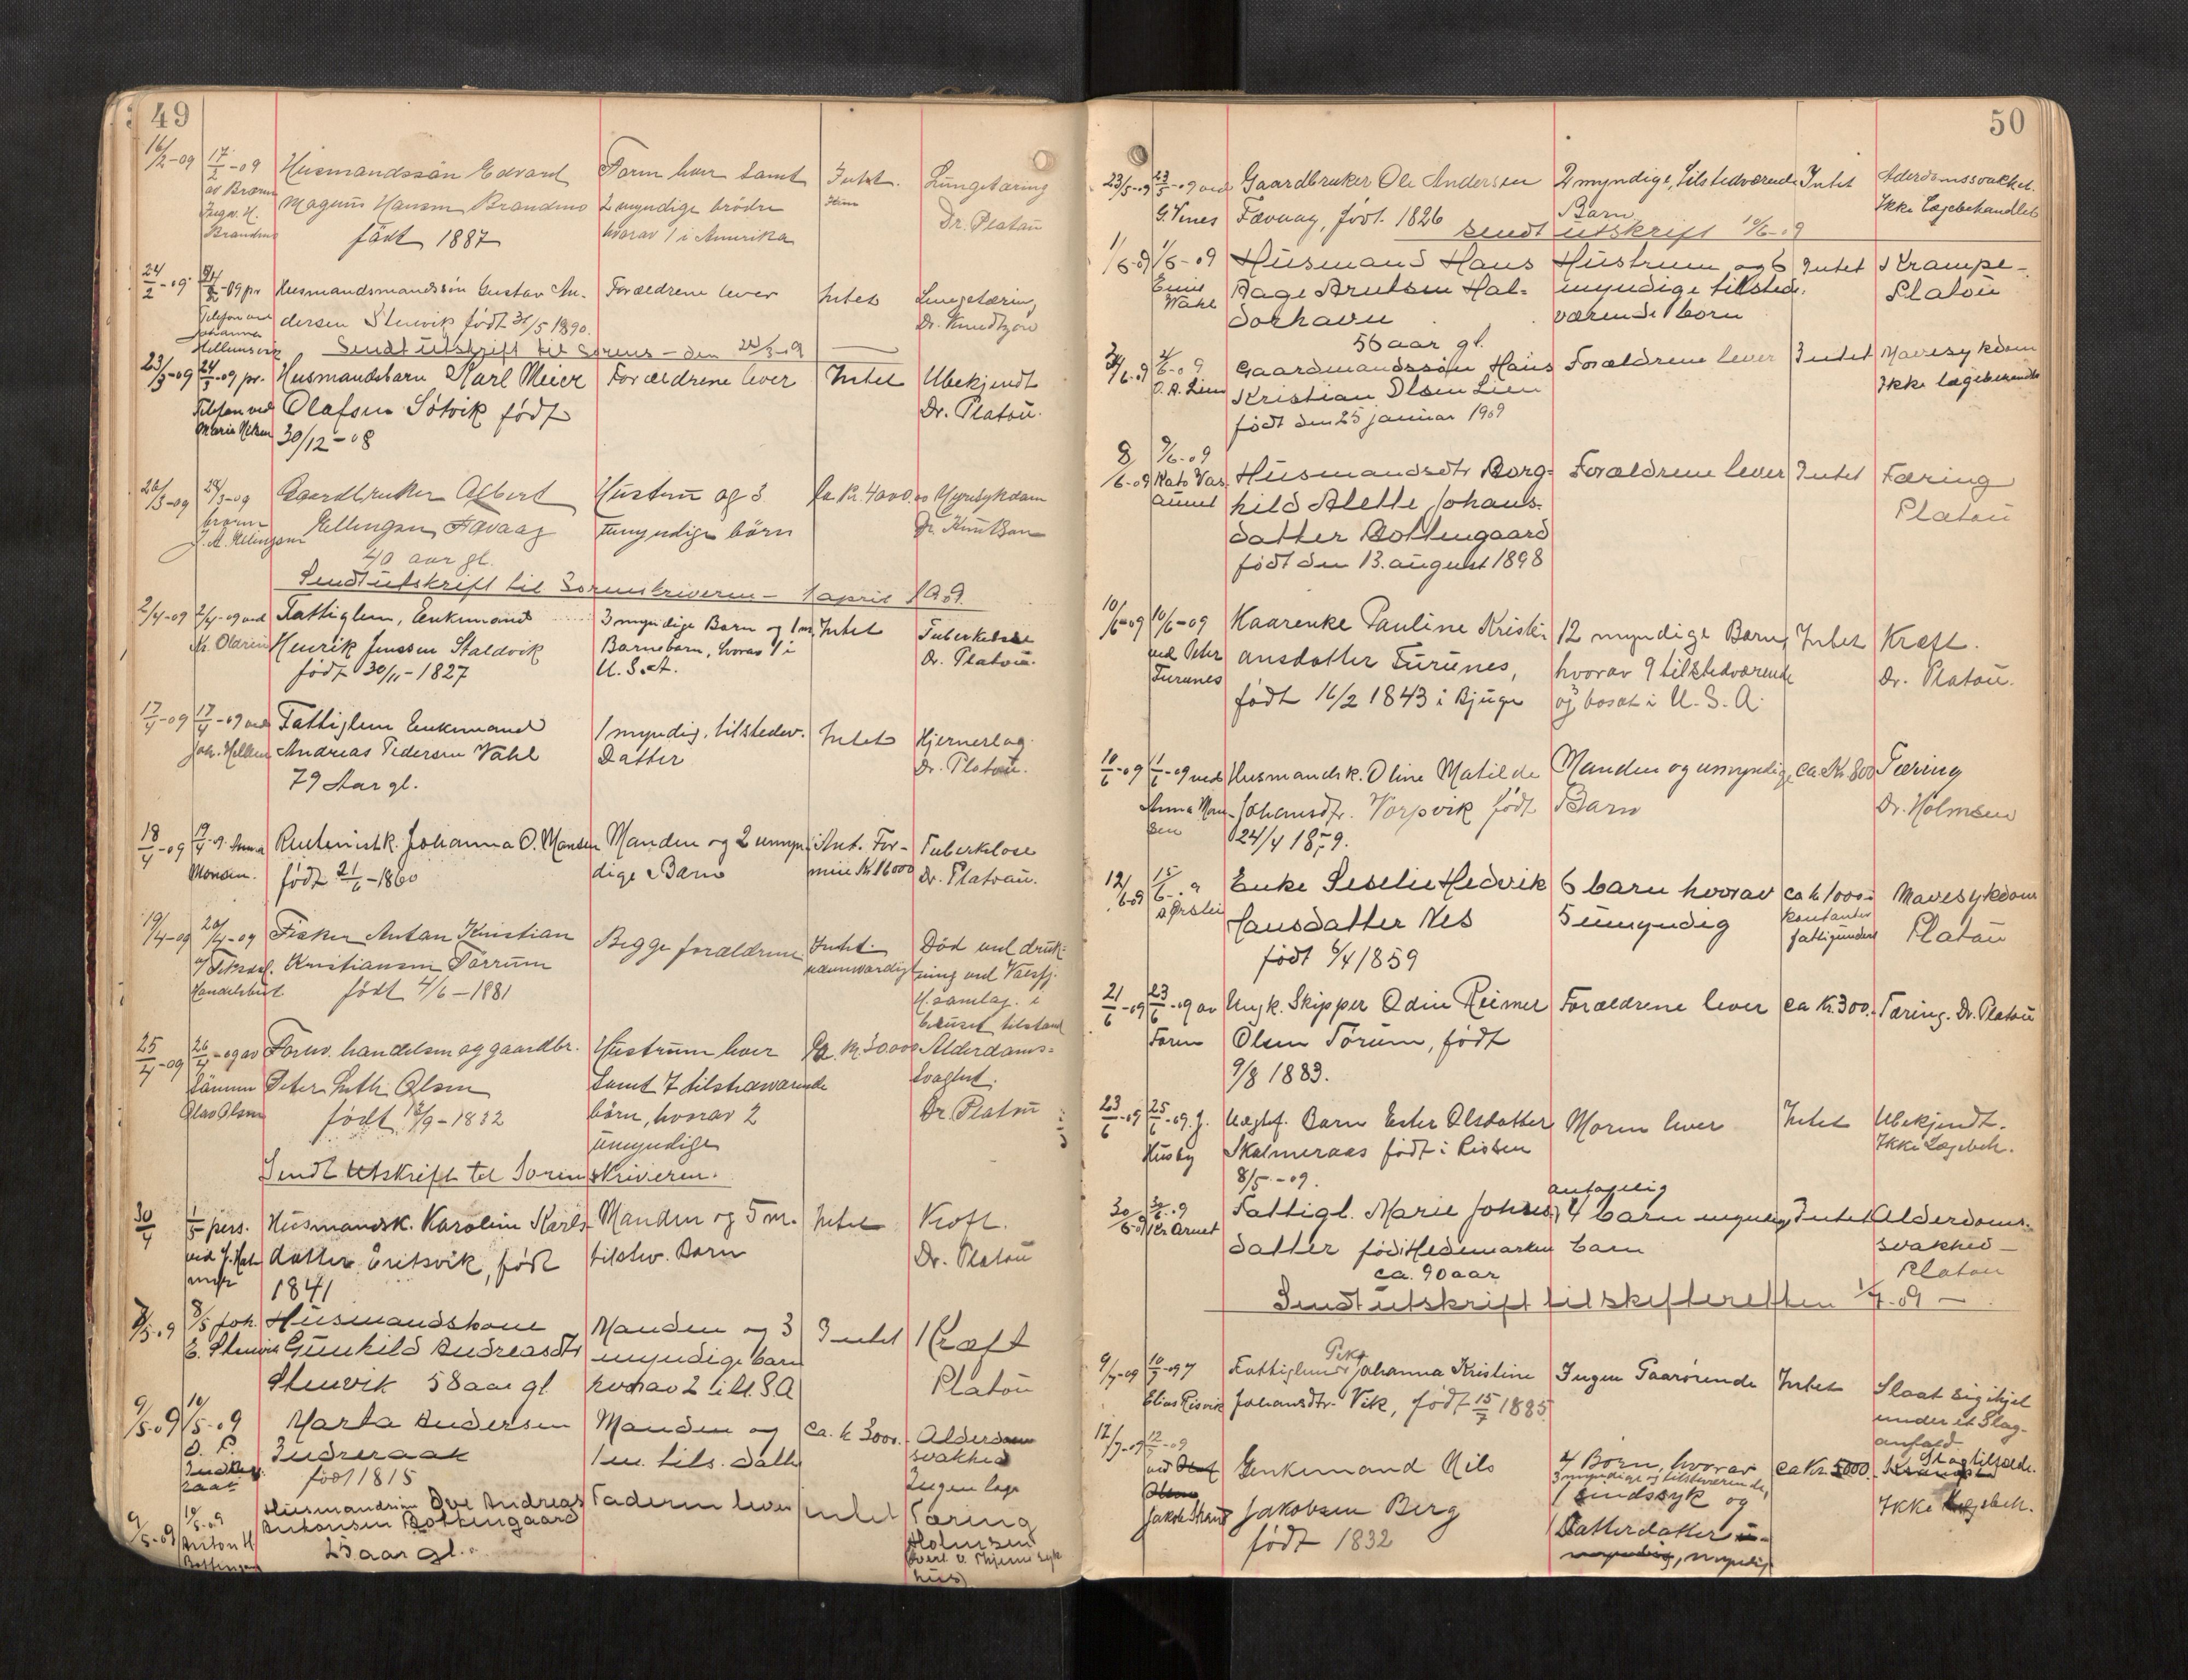 49
16/2-09 17/2-09 Husmandssøn Edvard Farm har samt Intet. Lungetæring
av Broren Magnus Hansen Brandmo 2 myndige brödre Dr. Platou
Ingv. H. født 1887 hvorav 1 i Amerika
24/2-09 -09 pr Husmandsmandssön Gustav An- Forældrene lever Intet Lungetæring
Telefon ved dersen Stenvik født 31/5 1890. Dr. Knudtzon
Johanna
Sendt utskrift til Sorens - den
23/3-09 24/3-09 pr. Husmandsbarn Karl Meier Forældrene lever Intet Ubekjendt
Telefon ved Olafsen Søtvik født Dr. Platou.
30/12-08
-09 -09 Gaardbruker Albert Hustru og 3 ca kr. 4000.00
broren Ellingsen Favaag umyndige börn
40 aar gl.
Sendt utskrift til Sorenskriveren - 1 april 1909.
2/4-09 2/4-09 ved Fattiglem, Enkemand 3 myndige Barn og 1 m. Intet Tuberkelose
Henrik Jenssen Staldvik Barnebarn, hvorav 1 i Dr. Platou.
født 30/11-1827 U.S.A.
17/4-09 17/4-09 ved Fattiglem Enkemand 1 myndig, tilstedev. Intet Hjerneslag
Andreas Pedersen Vahl Datter Dr. Platou.
79 Aar gl.
18/4-09 19/4-9 Anna Johanna O. Monsen Manden og 2 umyn- Ant. For- Tuberkelose
Monsen. født 21/6-1860 dige Barn mue Kr 16000 Dr. Platou.
19/4-09 20/4-09 Fisker Antan Kristian Begge forældrene Intet Död ved druk-
Kristiansen Tørrum nævnværdigt ning ved Valsfj.
født 4/6-1881 H. samlag i
beruset tilstand
25/4-09 26/4-09 av Forhv. handelsm og gaardbr. Hustruen lever Ca. kr. 30.000 Alderdoms-
Sønnen Peter Olsen samt 7 tilstedeværende svaghet.
Olav Olsen født 12/9-1832 börn, hvorav 2 Dr. Platou
umyndige
Sendt Utskrift til Sorenskriveren.
30/4 1/5 pers. Husmandsk. Karoline Karls- Manden og 5 m. Intet Kræft.
datter, født tilstev. Barn Dr. Platou
1841
8/5-09 8/5 Joh. Husmandskone Manden og 3 Intet Kræft
E. Stenvik Gunhild Andreasdtr myndige barn Platou
Stenvik 58 aar gl hvorav 2 i U.S.A
9/5-09 10/5-09 Marta Andersen Manden og ca. k 3000. Alderdoms
Indreraak 1 m. tils. datter svakhed
født 1815 Ingen læge
9/5-09 10/5-09 Husmandssøn Ove Andreas Faderen lever intet Tæring
Anton H Antonsen Bottengaard Holmsen
25 aar gl.
hus
50
23/5-09 23/5-09 ved Gaardbruker Ole Andersen 2 myndige, tilstedværende Intet Alderdomssvakket.
G. Vines Favaag, født 1826 Barn Ikke Lægebehandlet
sendt utskrift 10/6-09
1/6-09 1/6-09 Husmand Hans Hustruen og 6 Intet Krampe-
Aage Arntsen Hal- myndige tilstede- Platou
dorhavn værende børn
56 aar gl.
-09 Gaardmandssøn Hans Forældrene lever Intet Mavesykdom
O. A. Lien Kristian Olsen Lien Ikke lægebehandlet
født den 25 januar 1909
8/6-09 9/6-09 Husmandsdtr Borg- Forældrene lever Intet Tæring
hild Alette Johans- Platou
datter Bottengaard
født den 13. august 1898
10/6-09 10/6-09 Kaarenke Pauline Kristi- 12 myndige Barn, Intet Kræft.
ved Peter ansdatter Furunes, hvorav 9 tilstedværende Dr. Platou.
Furunes født 16/2 1843 i Bjugn og bosat i U.S.A.
10/6-09 -09 ved Husmandsk. Oline Matilde Manden og umyndige ca. Kr. 800 Tæring
Anna Mon- Johansdtr. Vorpvik født Barn Dr. Holmsen
sen 24/4 1859.
12/6-09 15/6-9 Enke Seselie Hedvik 6 barn hvorav ca k 1000- Mavesykdom
Hansdatter Nes 5 umyndig kontanter Platou
født 6/4 1859
21/6-09 23/6-09 av Ungk. Skipper Odin Reimer Forældrene lever ca Kr. 300.- Tæring. Dr. Platou
Faren Olsen Tørum, født
9/8 1883.
23/6-09 25/6-09. J. Uægtef. Barn Ester Olsdatter Moren lever Intet Ubekjendt.
Husby Skalmeraas født i Rissen Ikke Lægebeh.
8/5-09.
antagelig
30/6-09 Fattigl. Marie Johns- 4 barn Intet Alderdoms-
datter født Hedemarken barn svakhed-
ca. 90 aar Platou
Sendt utskrift til skifteretten 1/7-09-
Pike
9/7-09 10/7-09 Fattiglem Johanna Kristine Ingen Paarørende Intet Slaat sig ihjel
Elias Johansdtr. Vik, født 15/7 1885 under et Slag-
anfald
12/7-09 12/7-09 Enkemand Nils 4 Børn, hvorav ca Kr. 5000.- Slagtilfælde.
ved 3 myndige og tilstedeværende,
Jakob Strand Jakobsen Berg 1 sindssyk og Ikke Lægebeh.
født 1832 Datterdatter
myndig